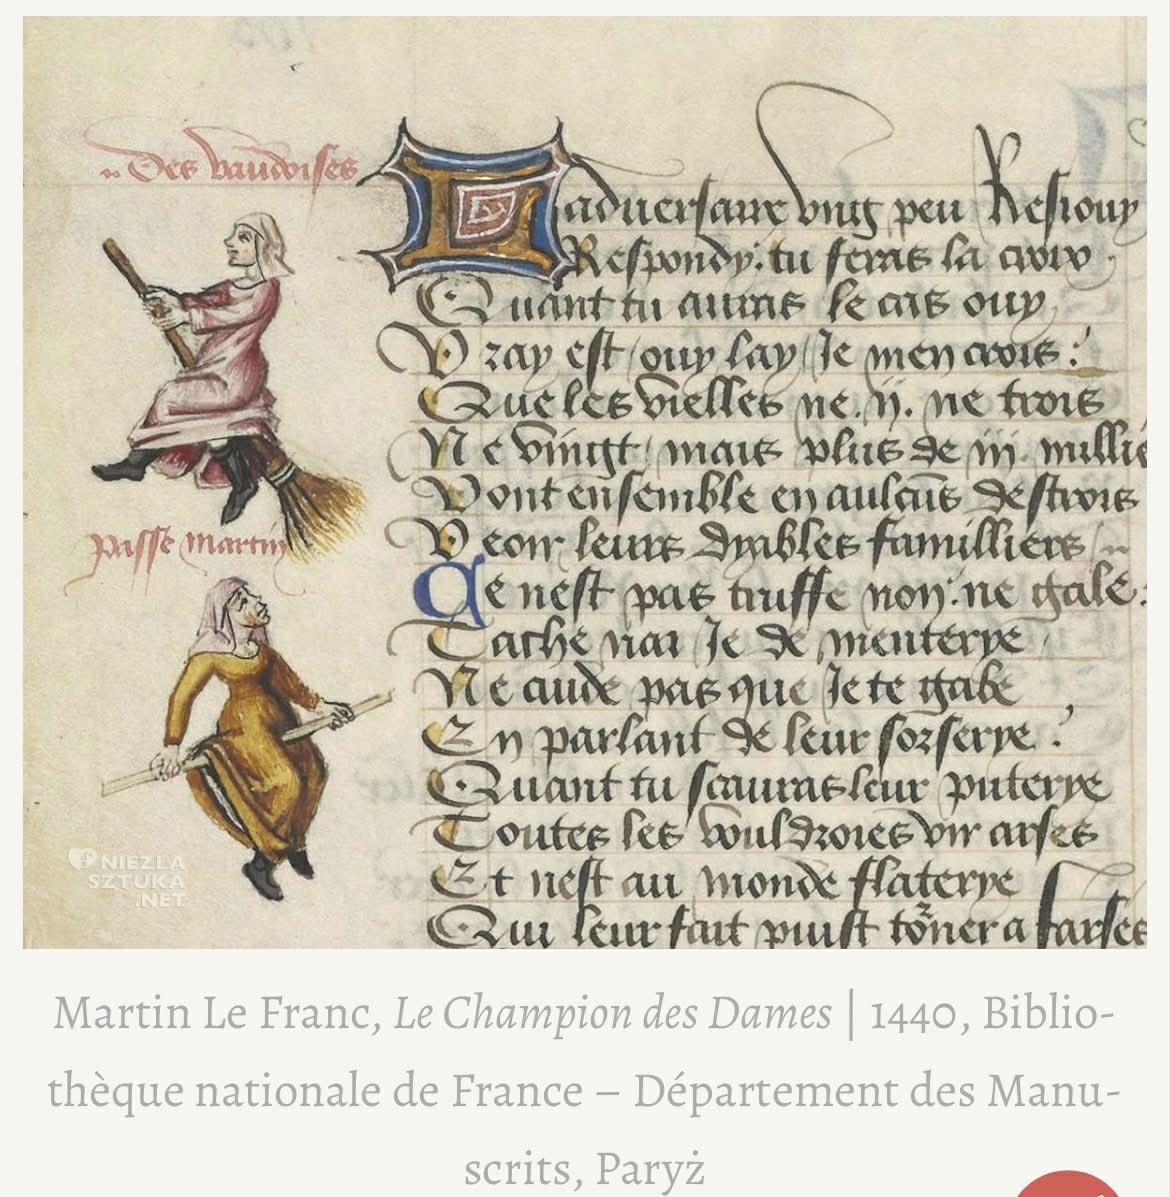 des vaudoises
passe martin
Ladversaire ung peu Resiouy
Respondy. tu feras la croix.
Quant tu auras le cas ouy
Vray est ouy lay Je men crois:
Que les vielles ne .ij. ne trois
Ne vingt mais plus de iij. millie
Vont ensemble en aulcuns destrois
Veoir leurs dyables familliers
Ce nest pas truffe non. ne gale.
Tache nai Je de menterye
Ne cuide pas que Je te gabe
En parlant de leur sorserye.
Quant tu scauras leur puterye
Toutes les vouldroies vir arses
Et nest au monde flaterye
Qui leur fait puist tõner a farses
NIEZŁA
SZTUKA
.NET
Martin Le Franc, Le Champion des Dames | 1440, Biblio-
thèque nationale de France – Département des Manu-
scrits, Paryż